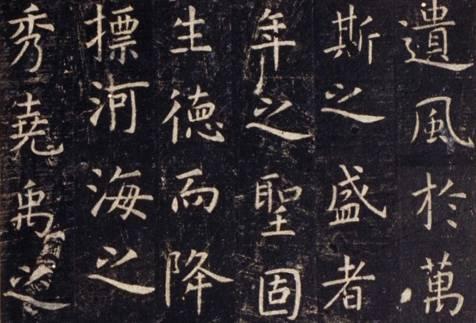 遺風於萬
斯之盛者
年之聖固
生德而降
摽河海之
秀堯禹之